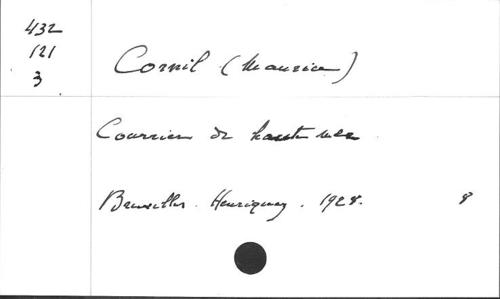 432
121
3
Cornil (Maurice)
Courrier de haute mer
Bruxelles. Henriquez. 1928. 8